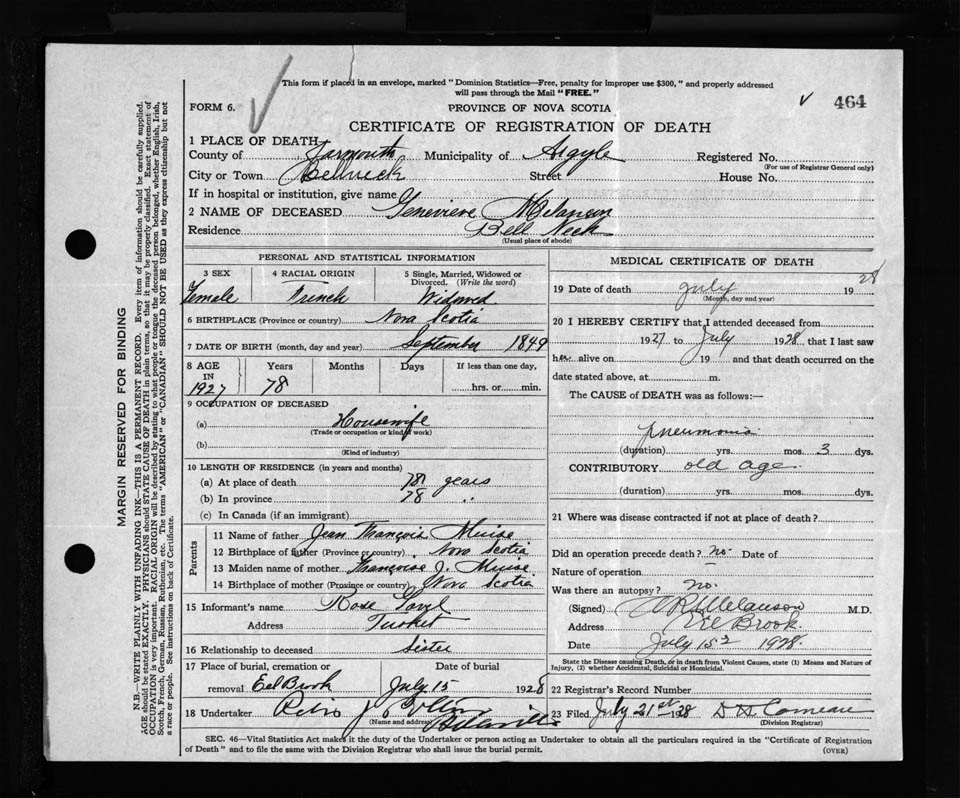 This form if placed in an envelope, marked "Dominion Statistics—Free, penalty for improper use $300," and properly addressed
will pass through the Mail "FREE."
FORM 6.
PROVINCE OF NOVA SCOTIA
464
CERTIFICATE OF REGISTRATION OF DEATH
1 PLACE OF DEATH—
County of Yarmouth Municipality of Argyle Registered No.
(For use of Registrar General only)
City or Town Bellneck Street House No.
If in hospital or institution, give name
2 NAME OF DECEASED Genevieve Melanson
Residence Bell Neck
(Usual place of abode)
PERSONAL AND STATISTICAL INFORMATION
3 SEX 4 RACIAL ORIGIN 5 Single, Married, Widowed or
Divorced. (Write the word)
Female French Widowed
6 BIRTHPLACE (Province or country) Nova Scotia
7 DATE OF BIRTH (month, day and year) September 1849
8 AGE Years Months Days If less than one day,
IN
1927 78 hrs. or min.
9 OCCUPATION OF DECEASED
(a) Housewife
(Trade or occupation or kind of work)
(b)
(Kind of industry)
10 LENGTH OF RESIDENCE (in years and months)
(a) At place of death 78 years
(b) In province 78 "
(c) In Canada (if an immigrant)
Parents
11 Name of father Jean François Muise
12 Birthplace of father (Province or country) Nova Scotia
13 Maiden name of mother Françoise J. Muise
14 Birthplace of mother (Province or country) Nova Scotia
15 Informant's name Rose
Address Tusket
16 Relationship to deceased Sister
17 Place of burial, cremation or Date of burial
removal Eel Brook July 15 1928
18 Undertaker J.
(Name and address)
MEDICAL CERTIFICATE OF DEATH
19 Date of death July 1928
(Month, day and year)
20 I HEREBY CERTIFY that I attended deceased from
1927 to July 1928, that I last saw
h alive on 19 and that death occurred on the
date stated above, at m.
The CAUSE of DEATH was as follows:—
pneumonia
(duration) yrs. mos. 3 dys.
CONTRIBUTORY old age
(duration) yrs. mos. dys.
21 Where was disease contracted if not at place of death?
Did an operation precede death? no Date of
Nature of operation
Was there an autopsy? no.
(Signed) Melanson M.D.
Address Eel Brook
Date July 15 1928.
State the Disease causing Death, or in death from Violent Causes, state (1) Means and Nature of
Injury, (2) whether Accidental, Suicidal or Homicidal.
22 Registrar's Record Number
23 Filed July 21st 28 Comeau
(Division Registrar)
SEC. 46—Vital Statistics Act makes it the duty of the Undertaker or person acting as Undertaker to obtain all the particulars required in the "Certificate of Registration
of Death" and to file the same with the Division Registrar who shall issue the burial permit.
(OVER)
MARGIN RESERVED FOR BINDING
N.B.—WRITE PLAINLY WITH UNFADING INK—THIS IS A PERMANENT RECORD. Every item of information should be carefully supplied.
AGE should be stated EXACTLY. PHYSICIANS should STATE CAUSE OF DEATH in plain terms, so that it may be properly classified. Exact statement of
OCCUPATION is very important. RACIAL ORIGIN will be described by stating to what people or tongue the deceased person belonged, whether English, Irish,
Scotch, French, German, Russian, Ruthenian, etc. The terms "AMERICAN" or "CANADIAN" SHOULD NOT BE USED as they express citizenship but not
a race or people. See instructions on back of Certificate.